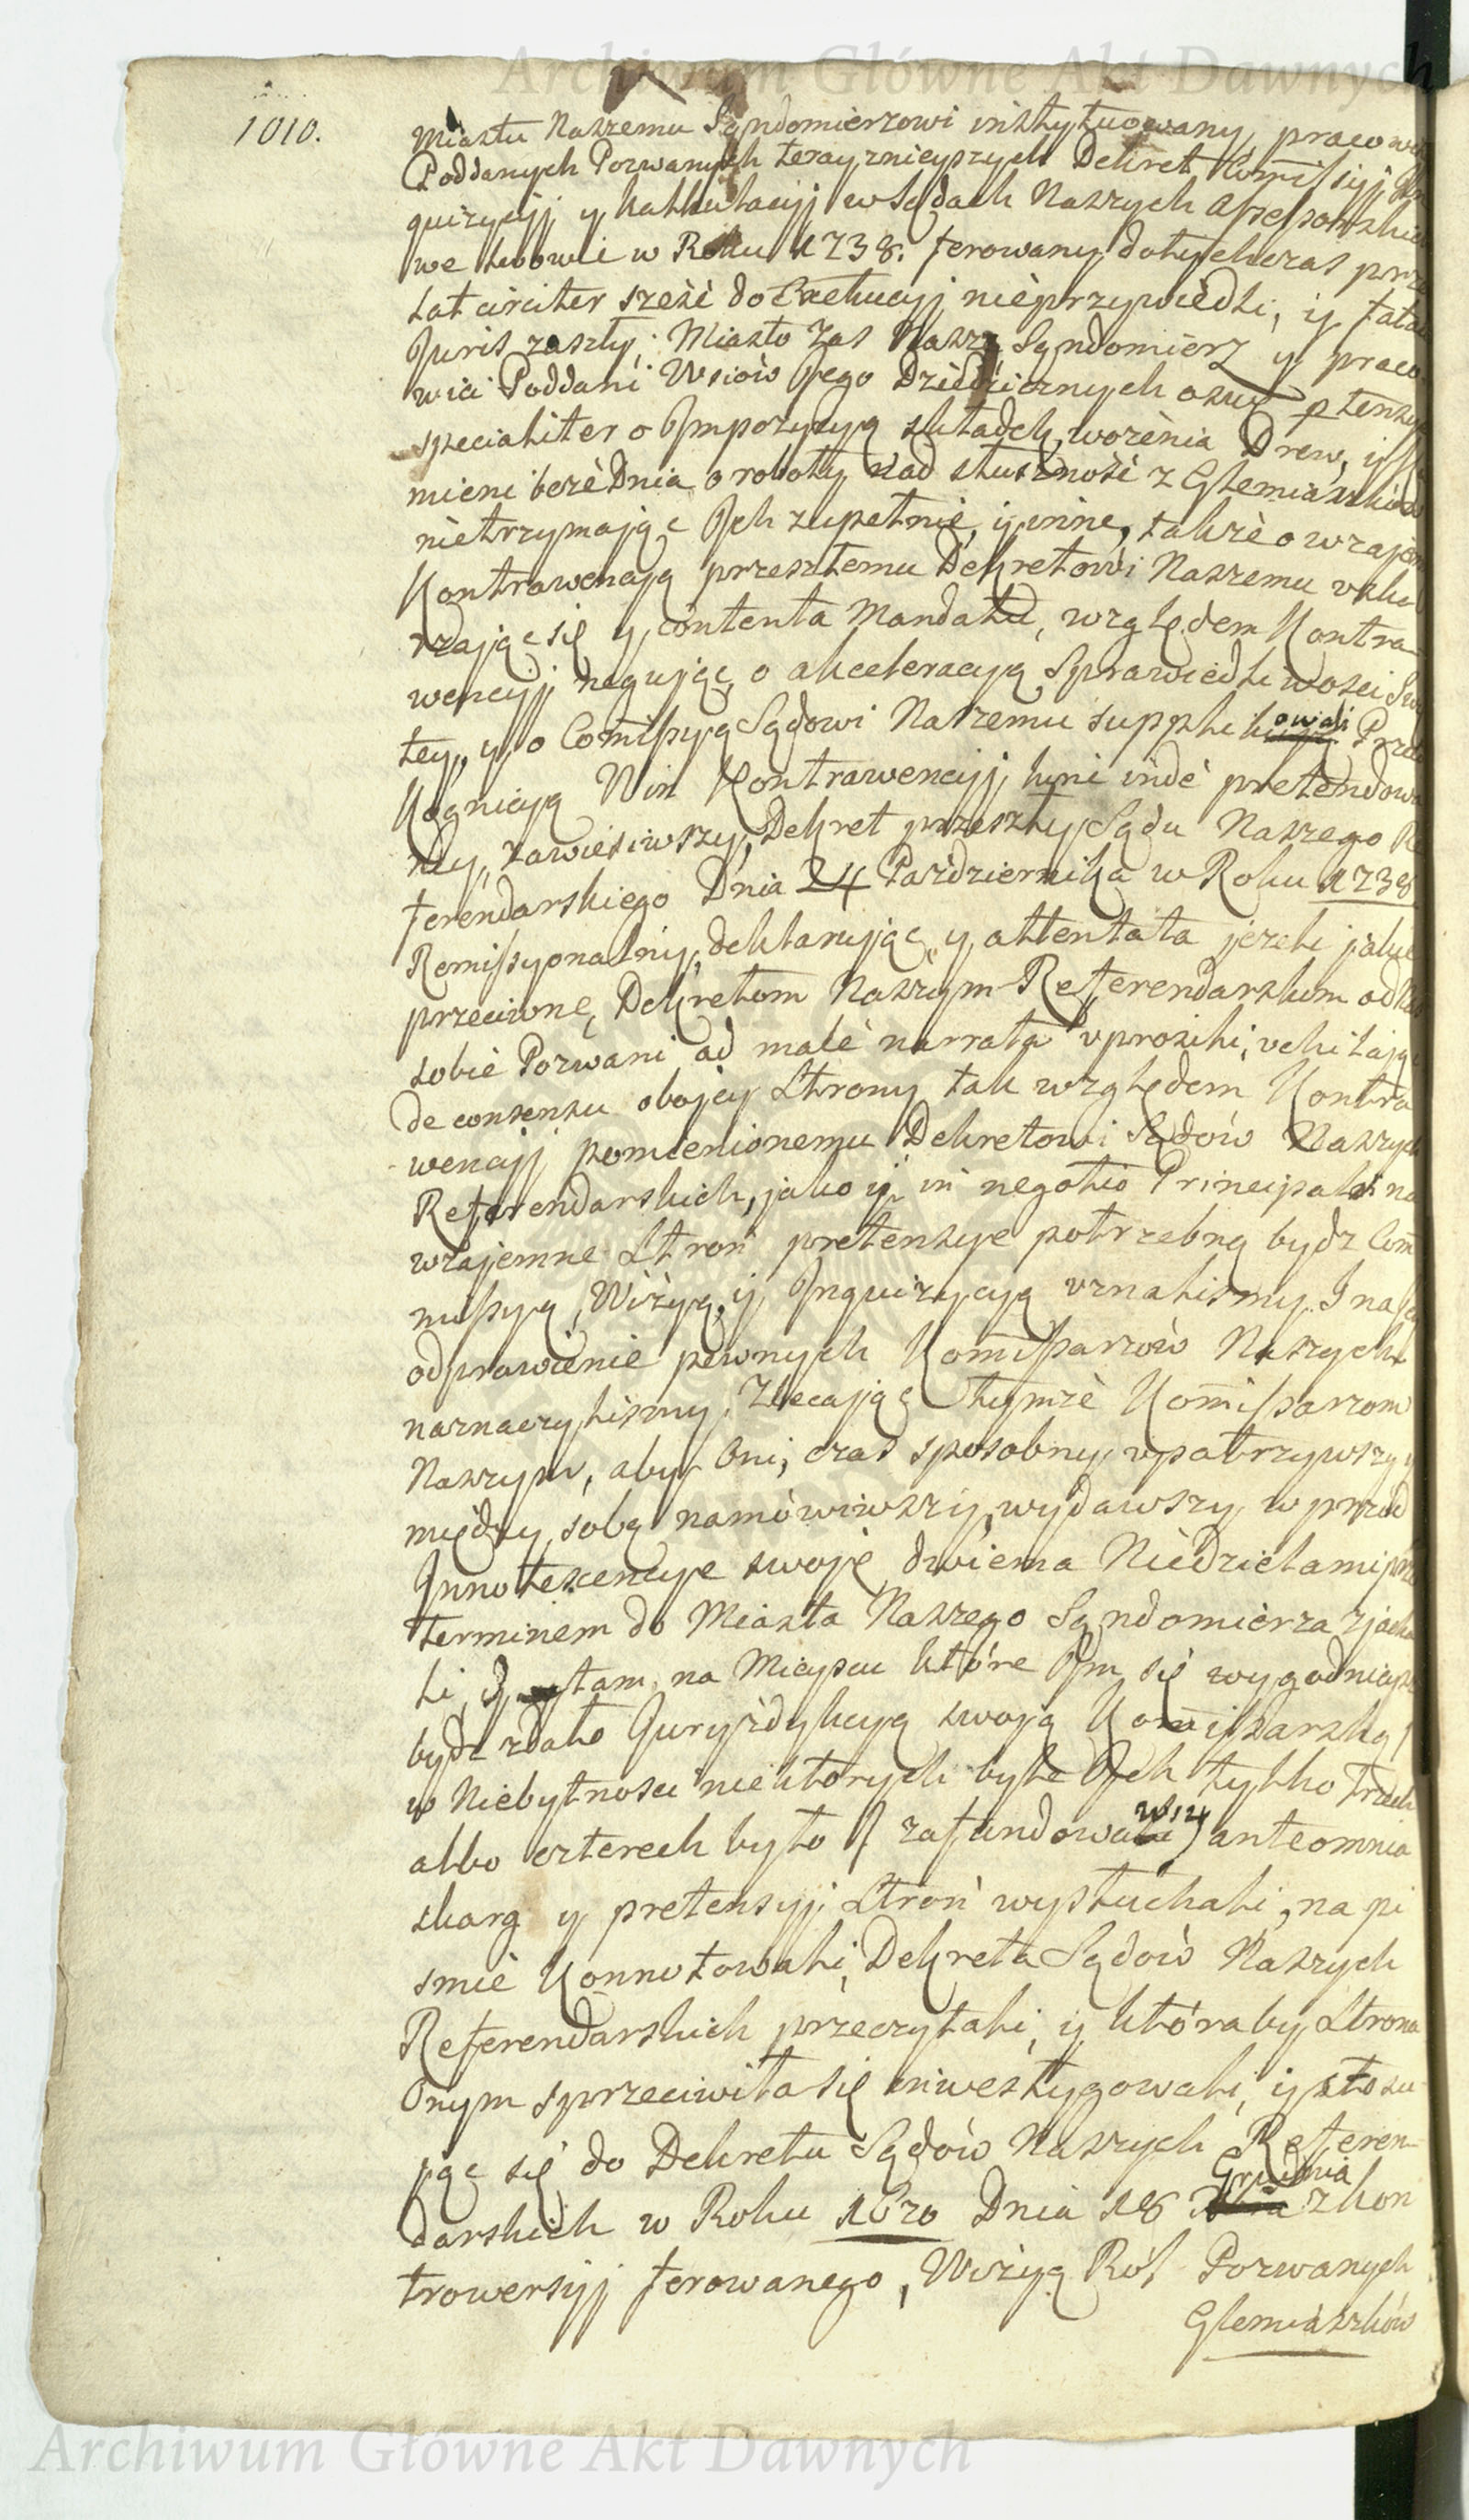 Archiwum Główne Akt Dawnych
1010.
Miastu Naszemu Sądomierzowi instytuowany, pracowi
Poddanych Pozwanych teraznieyszych Dekret Komissyj
quizycyj y kalkulacyj w Sądach Naszych Assessorskich
we Lwowie w Roku 1738. ferowany dotychczas prze
lat circiter sześć do Exekucyj nieprzywiedli, y fatal
Juris zaszły; Miasto zas Nasze Sądomierz y praco
wici Poddani Wsiow Jego Dziedzicznych oswe ptensye
specialiter o Impozycyą składek, wożenia Drew, y
mieni bezednia o roboty nad słuszność z Glemiaszków
nietrzymając Ich zupełnie, y inne, także o wzajem
Kontrawencyą przeszłemu Dekretowi Naszemu uska
rzając się y contenta Mandatu, względem Kontra
wencyj negując, o akceleracyą Sprawiedliwosci Swię
tey, y o Comissyą Sądowi Naszemu supplikowali
Kognicyą Win Kontrawencyj hinc inde pretendowa
ney, zawiesiwszy, Dekret przeszły Sądu Naszego Re
ferendarskiego Dnia 24 Pazdziernika w Roku 1738
Remissyonalny, deklarując, y attentata jezeli jakie
przeciwne, Dekretom Naszym Referendarskim od Nas
sobie Pozwani ad male narrata uprosili, uchilając
de consensu obojey Strony tak względem Kontra
wencyj pomienionemu Dekretowi Sądów Naszych
Referendarskich, jako y in negotio Principali na
wzajemne Stron pretensye potrzebną bydz Com
missyą, Wizyą, y Inquizycyą uznalismy. I na Jey
odprawienie pewnych Komissarzów Naszych
naznaczylismy, Zlecając tymże Komissarzom
Naszym, aby Oni, czas sposobny upatrzywszy y
między sobą namówiwszy, wydawszy wprzód
Innotescencye swoje dwiema Niedzielami przed
terminem do Miasta Naszego Sądomierza zjecha
li, y tam na Mieyscu które Im się wygodnieysze
bydz zdało Juryzdykcyą swoją Komissarską /
w Niebytnosci niektorych byle Ich tylko trzech
albo czterech było / zafundowawszy) ante omnia
skarg y pretensyj Stron wysłuchali, na pi
smie Konnotowali, Dekreta Sądów Naszych
Referendarskich przeczytali, y któraby Strona
Onym sprzeciwiła się inwestygowali, y stosu
jąc się do Dekretu Sądów Naszych Referen
darskich w Roku 1670 Dnia 18 Grudnia z kon
trowersyj ferowanego, Wizyą Ról Pozwanych
Glemiaszków
Archiwum Główne Akt Dawnych